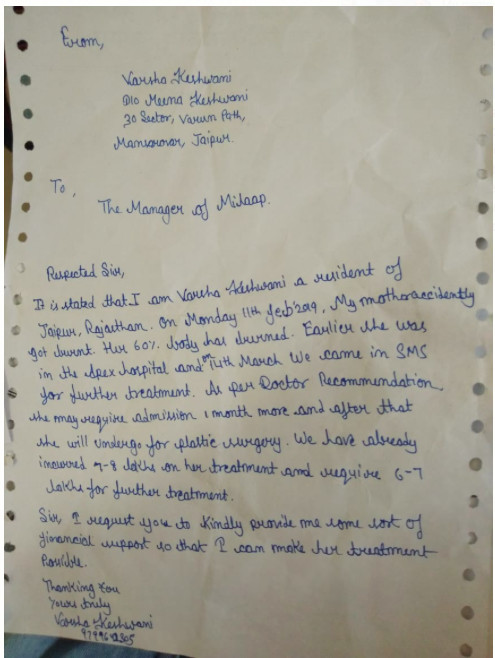 From,
Varsha Keshwani
D/O Meena Keshwani
30 Sector, Varun Path,
Mansarovar, Jaipur.
To,
The Manager of Milaap.
Respected Sir,
It is stated that I am Varsha Keshwani a resident of
Jaipur, Rajasthan. On Monday 11th Feb'2019, My mother accidently
got burnt. Her 60% body has burned. Earlier she was
in the Apex hospital and on 14th March We came in SMS
for further treatment. As per Doctor Recommendation,
she may require admission 1 month more and after that
she will undergo for plastic surgery. We have already
incurred 7-8 lakhs on her treatment and require 6-7
lakhs for further treatment.
Sir, I request you to kindly provide me some sort of
financial support so that I can make her treatment
Possible.
Thanking You
Yours truly
Varsha Keshwani